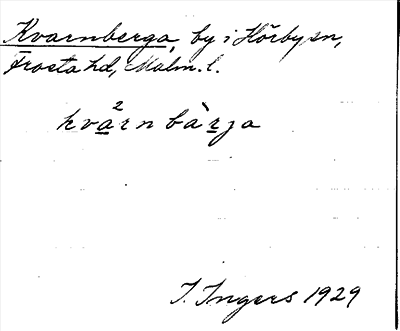 Kvarnberga, by i Hörby sn,
Frosta hd, Malm. l.
kva²rn bàrza
I. Ingers 1929